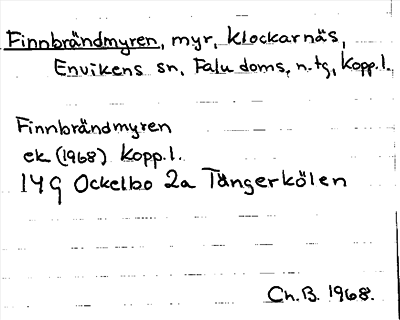 Finnbrändmyren, myr, Klockarnäs,
Envikens sn, Falu doms. n. tg, Kopp. l.
Finnbrändmyren
ek (1968) Kopp. l.
14 G Ockelbo 2a Tängerkölen
Ch. B. 1968.